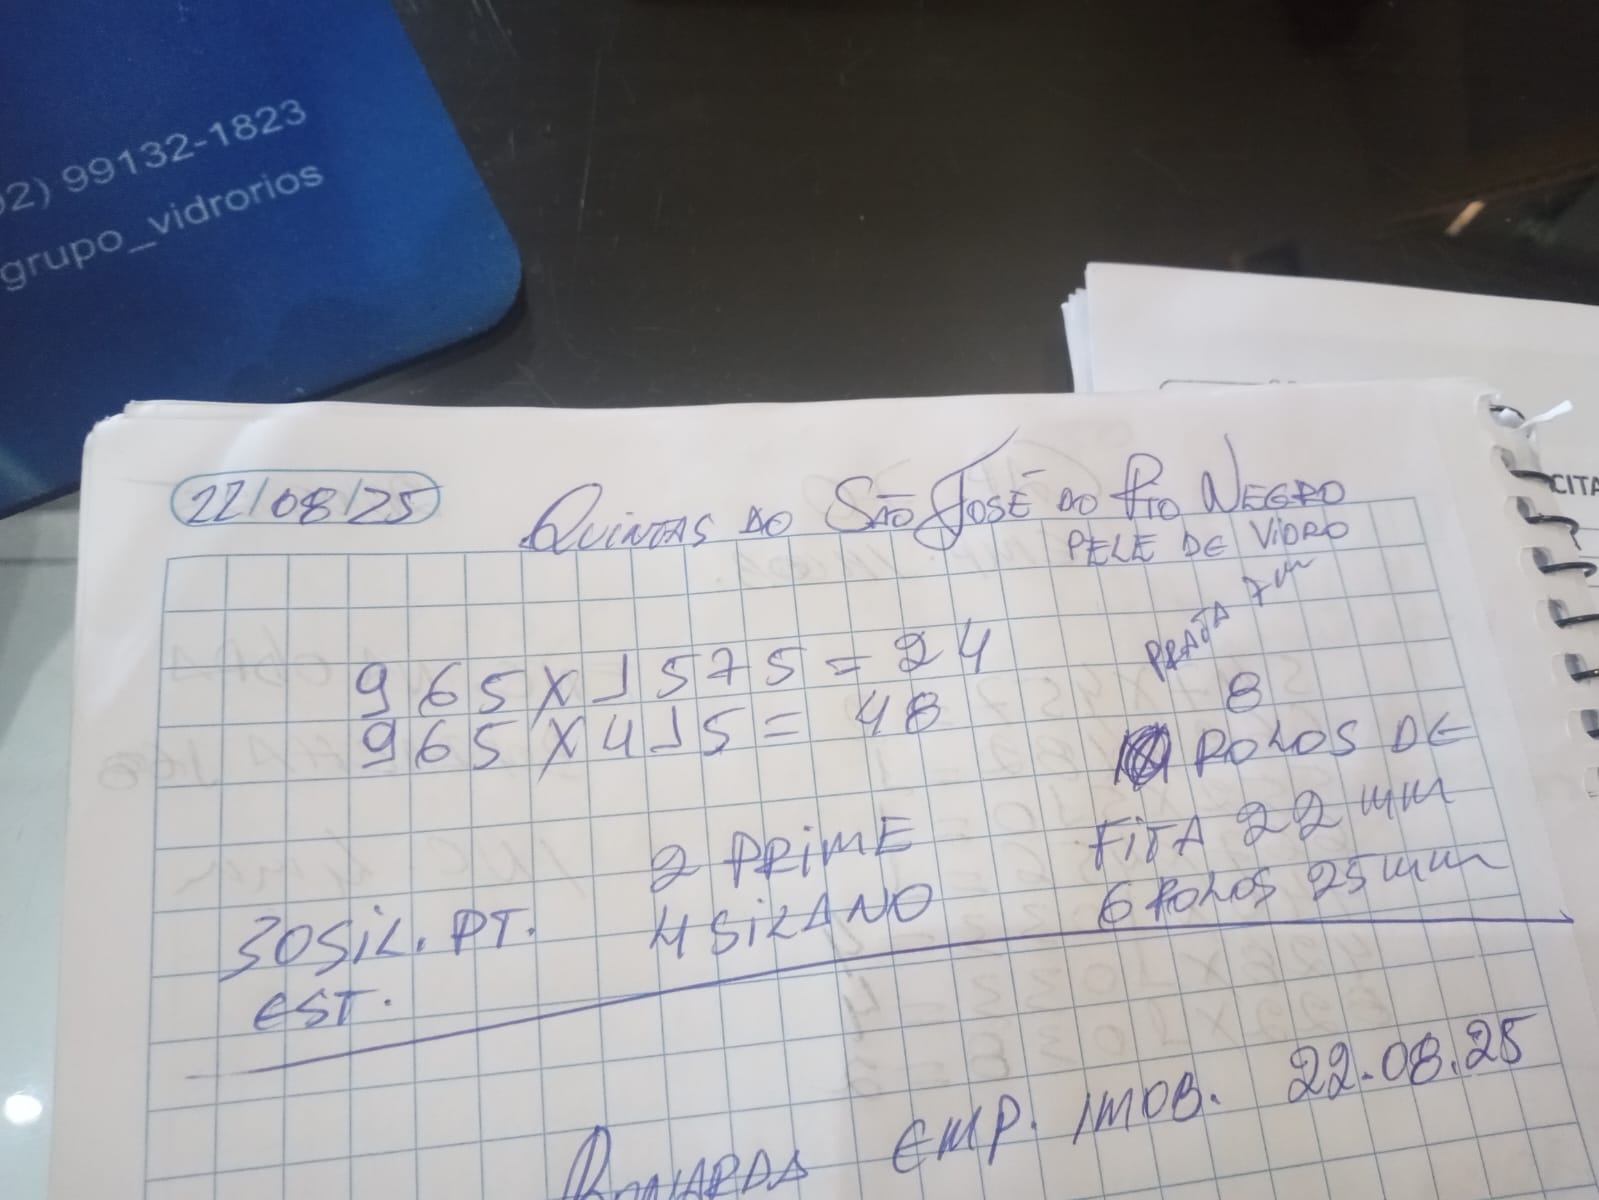 02) 99132-1823
grupo_vidrorios
CITA
22/08/25
QUINTAS DO SÃO JOSÉ DO RIO NEGRO
PELE DE VIDRO
PRATA 7mm
965 X 1575 = 24
965 X 415 = 48
8
ROLOS DE
FITA 22 mm
6 ROLOS 25mm
2 PRIME
4 SILANO
30 SIL. PT.
EST.
EMP. IMOB. 22.08.25